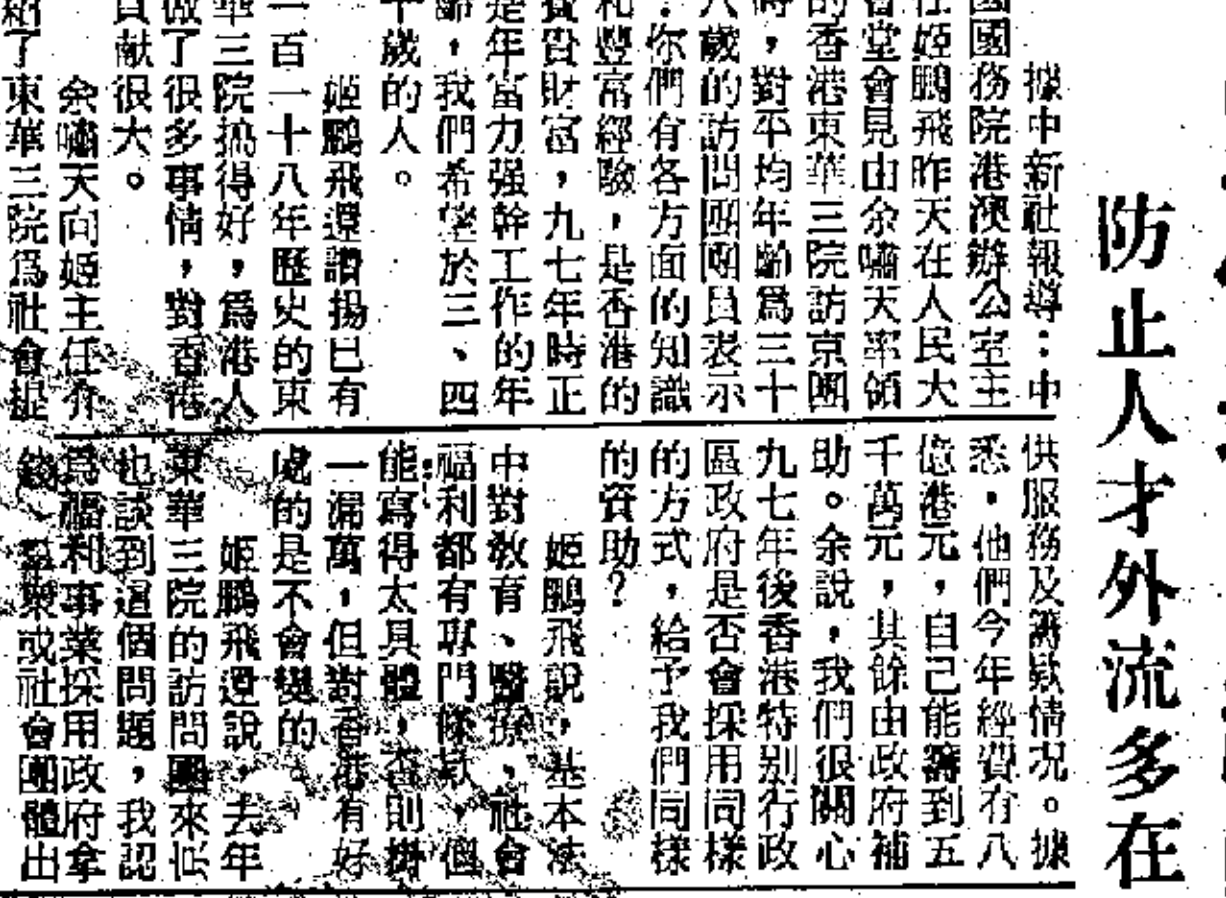 防止人才外流多在
據中新社報導：中
國國務院港澳辦公室主
任姬鵬飛昨天在人民大
會堂會見由余嘯天率領
的香港東華三院訪京團
時，對平均年齡爲三十
八歲的訪問團團員表示
：你們有各方面的知識
和豐富經驗，是香港的
寶貴財富，九七年時正
是年富力强幹工作的年
齡，我們希望於三、四
十歲的人。
姬鵬飛還讚揚已有
一百一十八年歷史的東
華三院搞得好，爲港人
做了很多事情，對香港
貢献很大。
余嘯天向姬主任介
紹了東華三院爲社會提
供服務及籌欵情況。據
悉，他們今年經費有八
億港元，自己能籌到五
千萬元，其餘由政府補
助。余說，我們很關心
九七年後香港特別行政
區政府是否會採用同樣
的方式，給予我們同樣
的資助？
姬鵬飛說，基本法
中對教育、醫療、社會
福利都有專門條欵，但
能寫得太具體，否則掛
一漏萬，但對香港有好
處的是不會變的。
姬鵬飛還說，去年
東華三院的訪問團來似
也談到這個問題，我認
爲福利事業採用政府拿
錢、羣衆或社會團體出